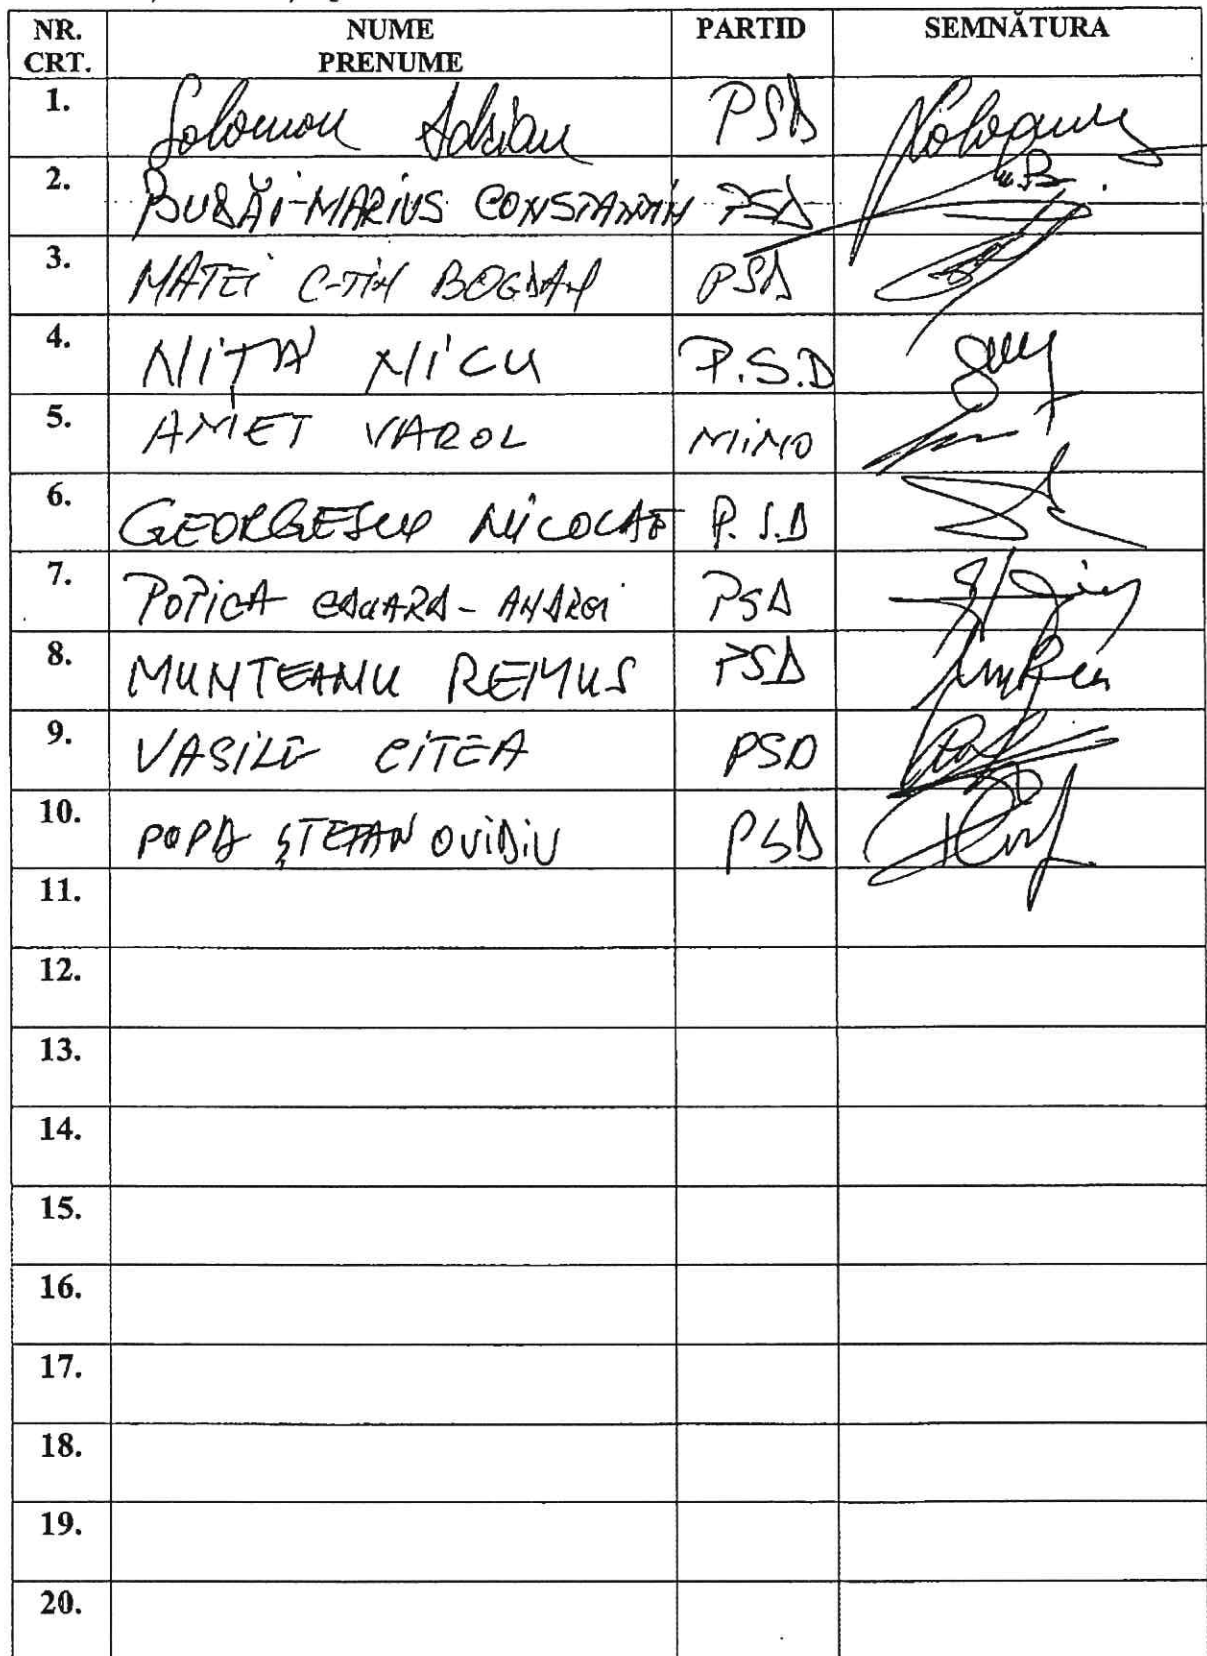 NR. CRT. NUME PRENUME PARTID SEMNĂTURA
1. Solomon Adrian PSD
2. MARIUS CONSTANTIN PSD
3. MATEI C-TIN BOGDAN PSD
4. NIȚĂ NICU P.S.D
5. AMET VAROL MINO
6. GEORGESCU NICOLAE P.S.D
7. POPICA PSD
8. MUNTEANU REMUS PSD
9. VASILE CÎTEA PSD
10. POPA ȘTEFAN OVIDIU PSD
11.
12.
13.
14.
15.
16.
17.
18.
19.
20.